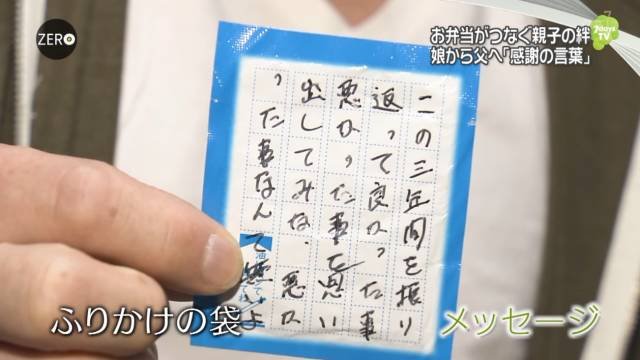 ZERO
お弁当がつなぐ親子の絆
娘から父へ「感謝の言葉」
7days
TV
この三年間を振り
返って良かった事
悪かった事を思い
出してみな. 悪か
った事なんて
ふりかけの袋
メッセージ